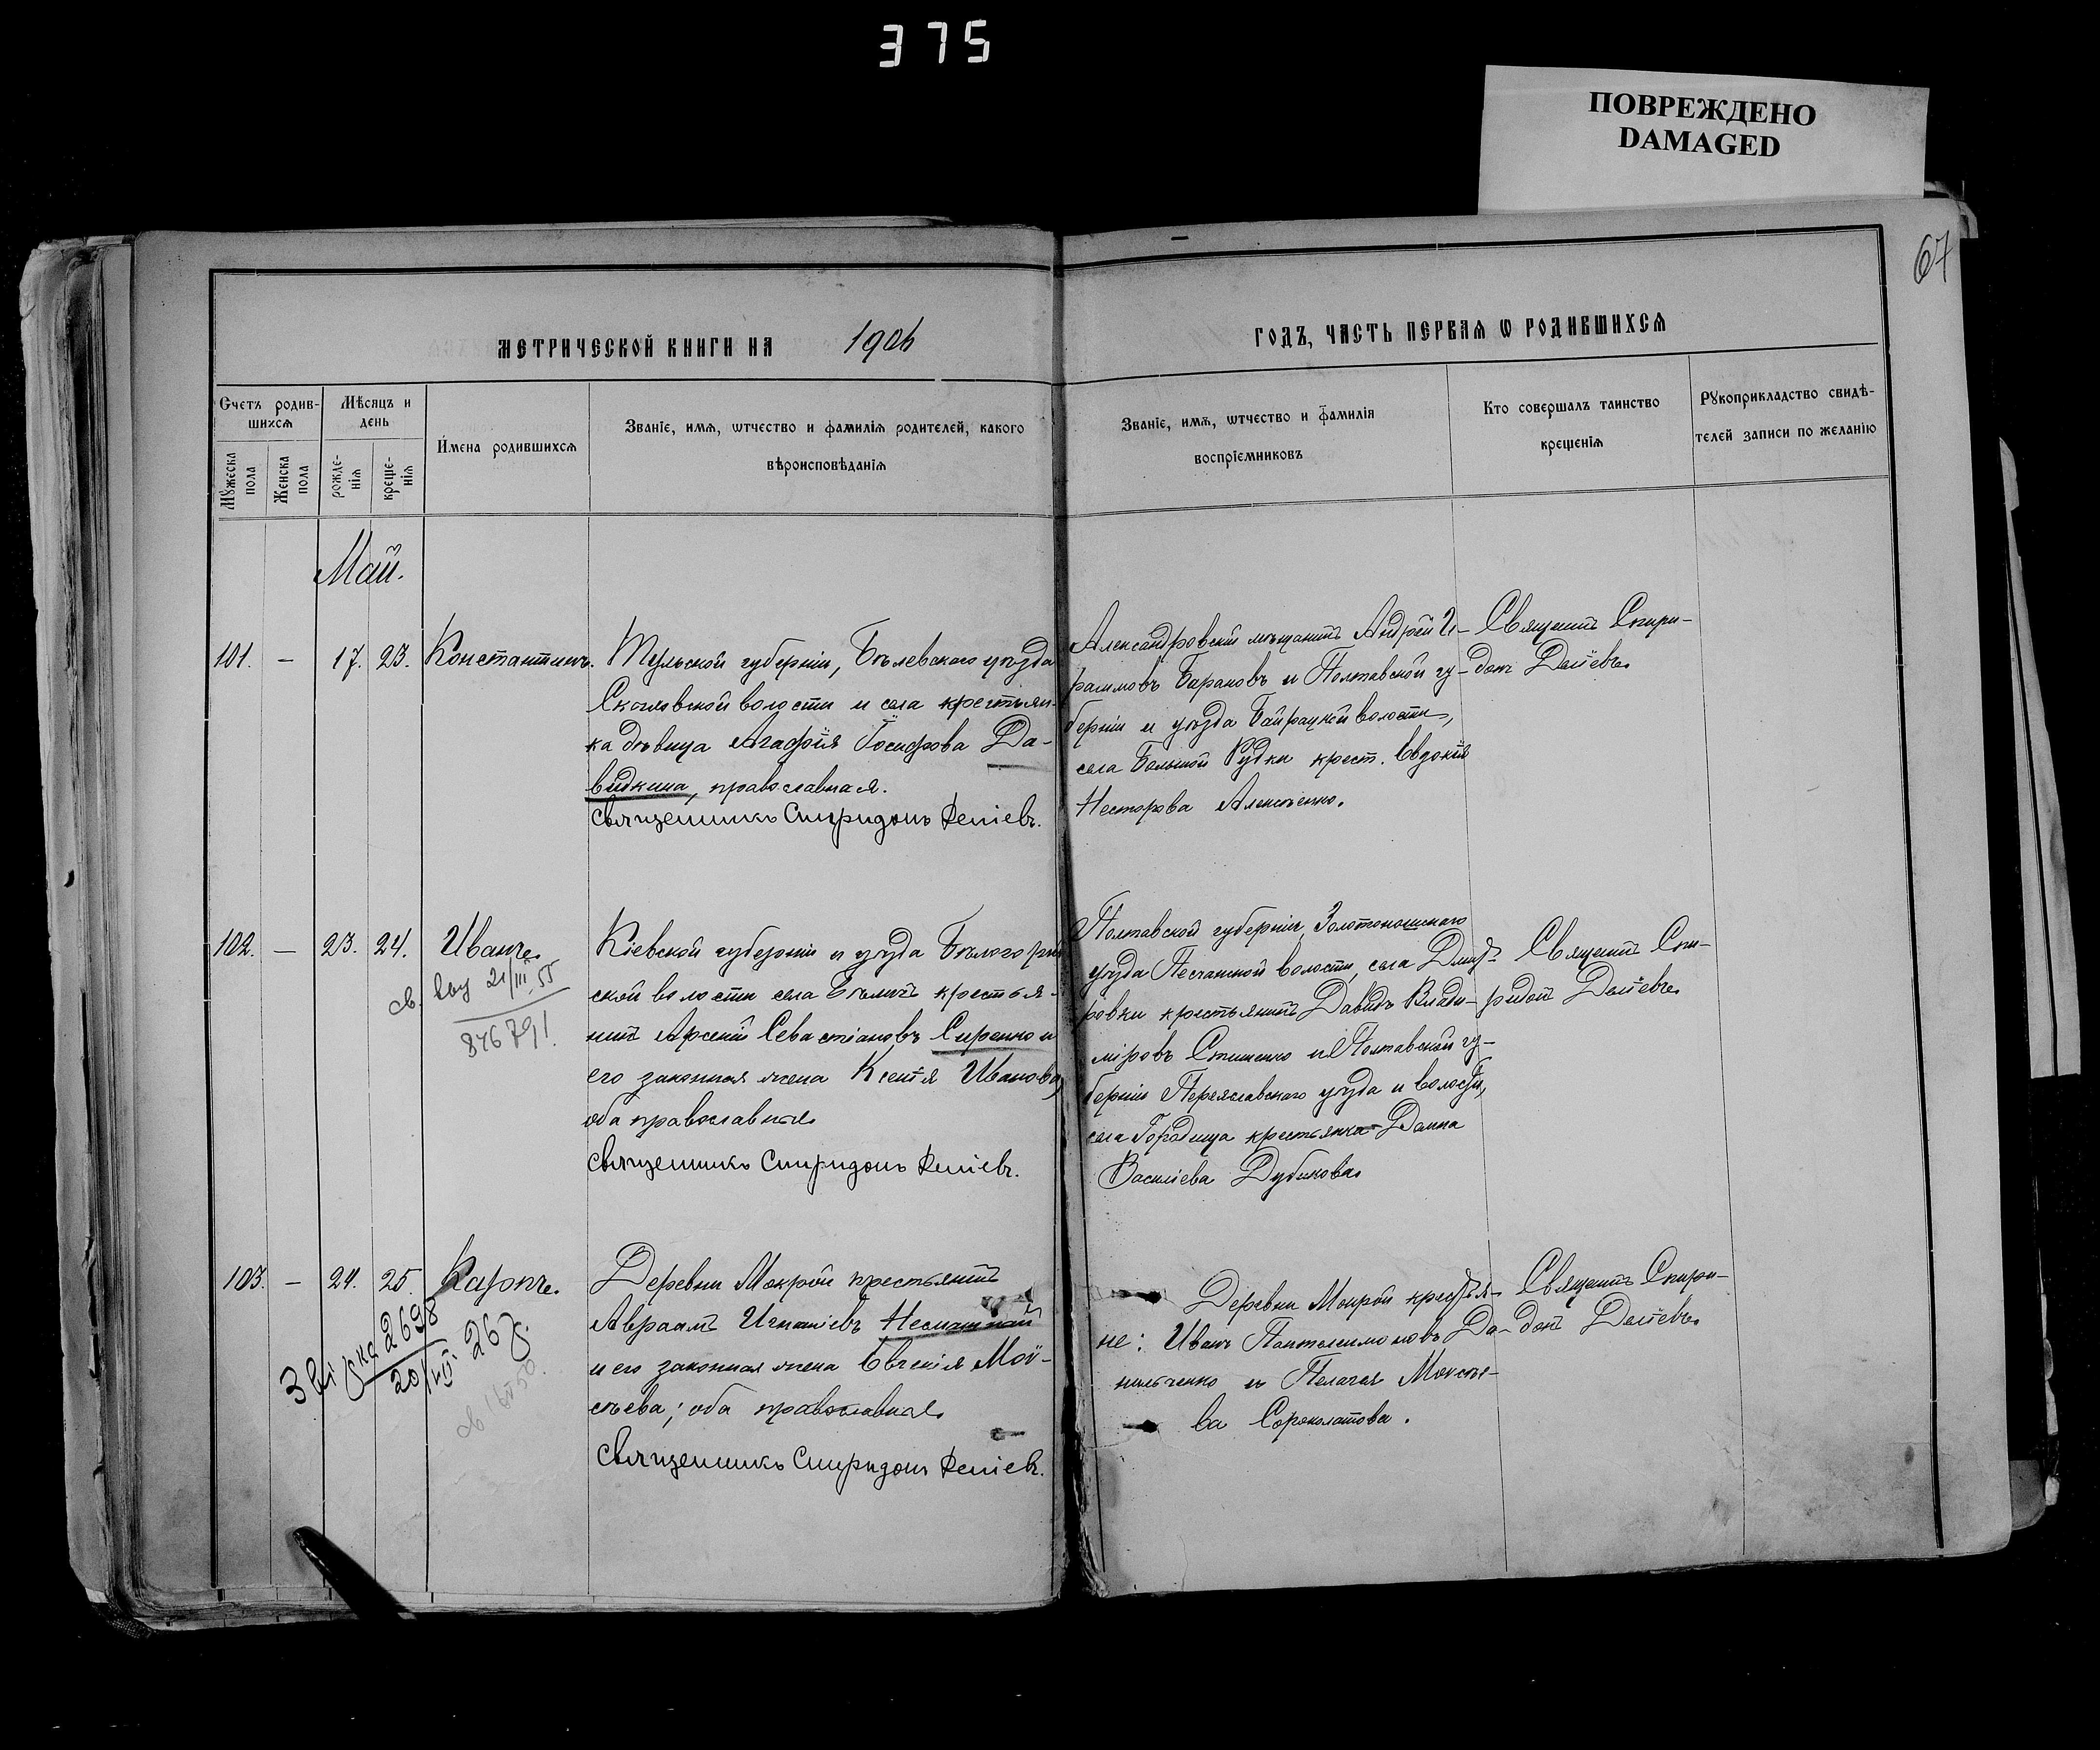 375
ПОВРЕЖДЕНО
DAMAGED
67
МЕТРИЧЕСКОЙ КНИГИ НА 1906
ГОДЪ, ЧАСТЬ ПЕРВАЯ Ѡ РОДИВШИХСЯ
Счетъ родив-
шихся
Мѣсяцъ и
день
Мужеска
пола
Женска
пола
рожде-
нія
креще-
нія
Имена родившихся
Званіе, имя, ѡтчество и фамилія родителей, какого
вѣроисповѣданія
Званіе, имя, ѡтчество и фамилія
воспріемниковъ
Кто совершалъ таинство
крещенія
Рукоприкладство свидѣ-
телей записи по желанію
Май.
101. — 17. 23. Константинъ.
Тульской губерніи, Бѣлевскаго уѣзда
волости и села крестьян-
ка дѣвица Агафія Іосифова Да-
видкина, православная.
Священникъ Спиридонъ
Александровскій мѣщанинъ Андрей И-
Барановъ и Полтавской гу-
берніи и уѣзда Байрацкой волости,
села Большой Рудки крест. Евдокія
Несторова
Священ. Спири-
донъ
102. — 23. 24. Иванъ.
21/III 55
876791.
Кіевской губерніи и уѣзда
ской волости села крестья-
нинъ Арсеній Севастіановъ Сиренко и
его законная жена Ксенія Иванова,
оба православные.
Священникъ Спиридонъ
Полтавской губерніи, Золотоношскаго
уѣзда Песчанной волости, села Дмит-
ровки крестьянинъ Давидъ Влади-
міровъ и Полтавской гу-
берніи Переяславскаго уѣзда и волости,
села Городища крестьянка Домна
Василіева Дубикова.
Священ. Спи-
ридонъ
103. — 24. 25. Карпъ.
2698
20/VII. 267
Деревни Мокрой крестьянинъ
Авраамъ Игнатіевъ
и его законная жена Евгенія Мои-
сѣева; оба православные.
Священникъ Спиридонъ
Деревни Мокрой крестья-
не: Иванъ Пантелеимоновъ Да-
нильченко и Пелагея Моисѣе-
ва
Священ. Спири-
донъ